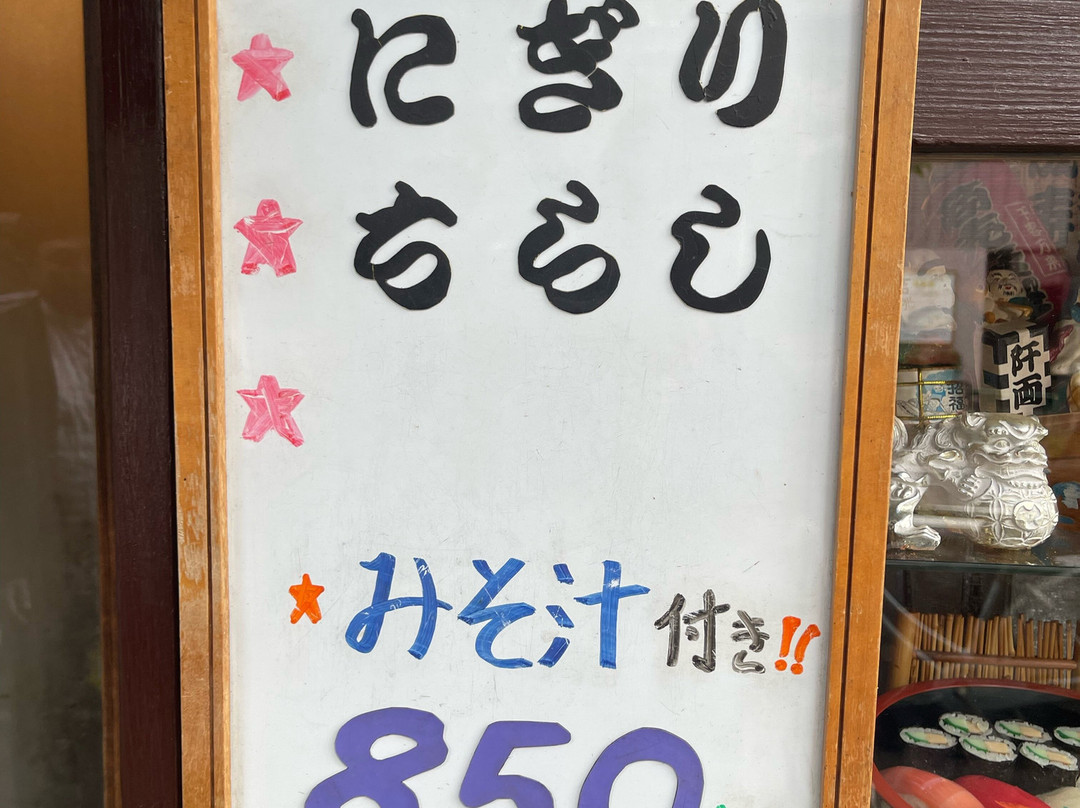 にぎり
ちらし
みそ汁付き!!
850